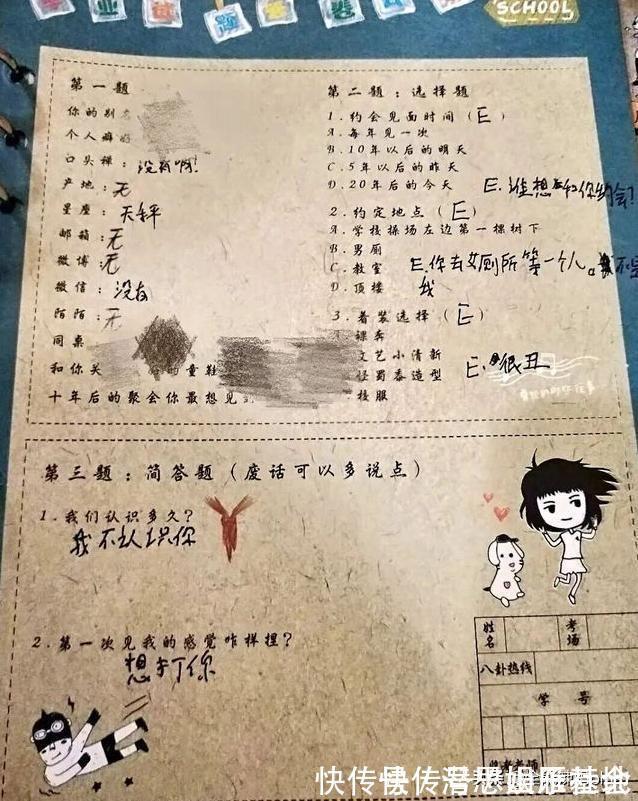 SCHOOL
第一题
你的别
个人癖好
口头禅：没有啊！
产地：无
星座：天秤
邮箱：无
微博：无
微信：没有
陌陌：无
同桌
和你关 的童鞋
十年后的聚会你最想见到
第二题：选择题
1.约会见面时间（E）
A.每年见一次
B.10年以后的明天
C.5年以后的昨天
D.20年后的今天 E.谁想 和你约会！
2.约定地点（E）
A.学校操场左边第一棵树下
B.男厕
C.教室 E.你去女厕所等一个人。 不是
D.顶楼 我
3.着装选择（E）
课本
文艺小清新
怪蜀黍造型 E.很丑
校服
第三题：简答题（废话可以多说点）
1.我们认识多久？
我不认识你
2.第一次见我的感觉咋样捏？
想打你
姓名 考场
八卦热线
学号
监考老师
快传号